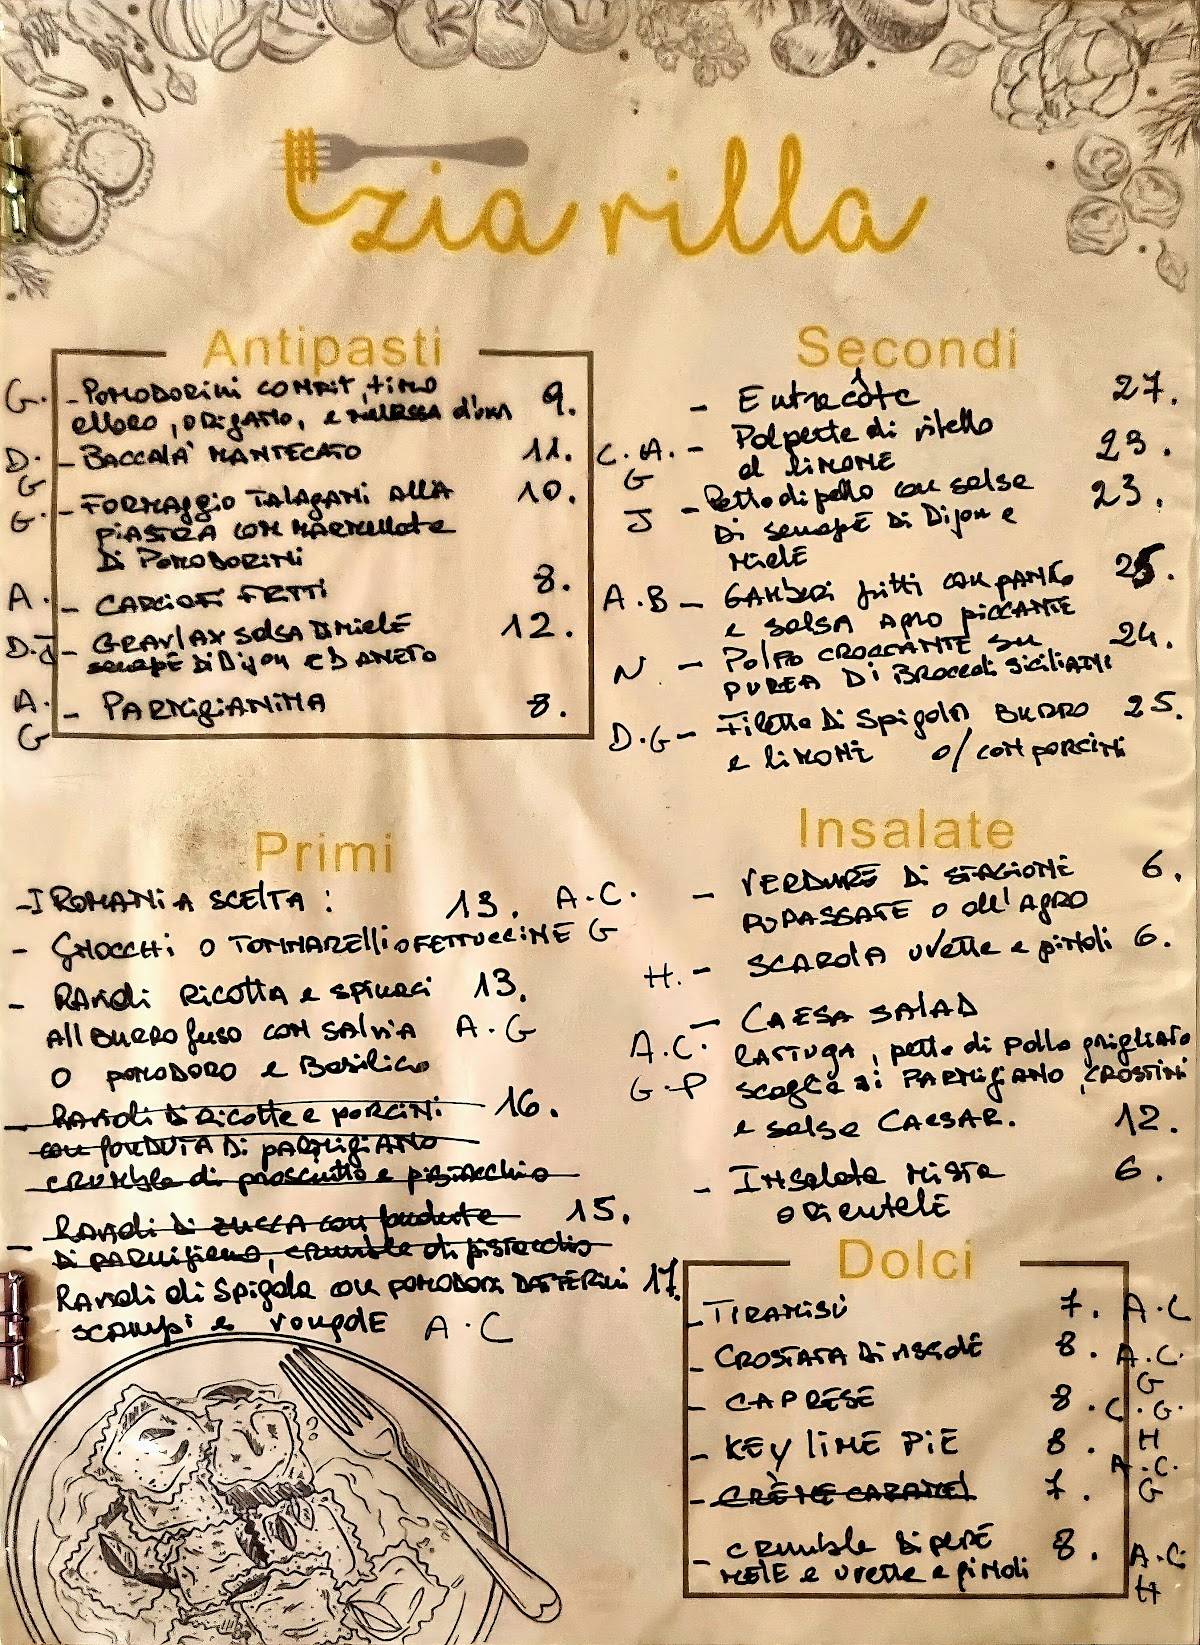 zia rilla
Antipasti
G. - POMODORINI CONFIT, TIMO 9.
alloro, ORIGANO, e MELASSA d'uva
D. G - BACCALA' MANTECATO 11.
G. - FORMAGGIO TALAGANI ALLA 10.
PIASTRA CON MARMELLATA
DI POMODORINI
A. - CARCIOFI FRITTI 8.
D.J - GRAVLAX SALSA DI MIELE 12.
senape DI Dijon E D ANETO
A. G - PARMIGIANINA 8.
Primi
- I ROMANI A SCELTA : 13. A.C.
- GNOCCHI O TONNARELLI O FETTUCCINE G
- RAVIOLI RICOTTA e SPINACI 13.
All BURRO fuso CON SALVIA A.G
O POMODORO e Basilico
- Ravioli di Ricotta e PORCINI 16.
con fonduta di PARMIGIANO
CRUMBLE di prosciutto e pistacchio
- Ravioli di ZUCCA con fonduta 15.
DI PARMIGIANO, CRUMBLE di pistacchio
RAVIOLI di Spigola con POMODORI DATTERINI 17.
SCAMPI e VONGOLE A.C
Secondi
- Entrecôte 27.
C.A. G - Polpette di vitello 23.
al LIMONE
J - Petto di pollo con salsa 23.
DI senape DI Dijon e
MIELE
A.B - GAMBERI fritti con PANKO 25.
e SALSA AGRO PICCANTE
N. - POLPO CROCCANTE SU 24.
PUREA DI BROCCOLI SICILIANI
D.G - Filetto DI Spigola BURRO 25.
e LIMONE O/CON PORCINI
Insalate
- VERDURE DI STAGIONE 6.
RIPASSATE O All'AGRO
H. - SCAROLA uvetta e pinoli 6.
- CAESA SALAD
A.C. LATTUGA, petto di pollo grigliato
G.P scaglie di PARMIGIANO, CROSTINI
e salsa CAESAR. 12.
- INSALATA MISTA 6.
ORIENTALE
Dolci
- TIRAMISÙ 7. A.C
- CROSTATA DI VISCIOLE 8. A.C. G
- CAPRESE 8. C.G. H
- KEY LIME PIE 8. A.C. G
- CRÈME CARAMEL 7.
- CRUMBLE DI PERE 8. A.C. H
MELE e UVETTA e PINOLI